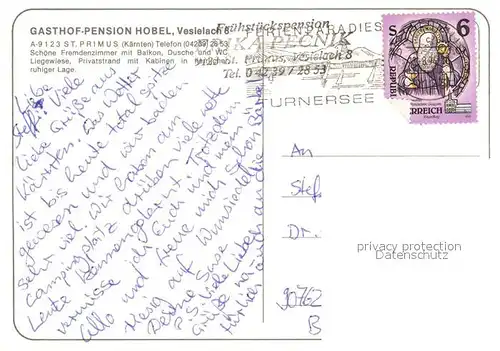 GASTHOF-PENSION HOBEL, Vesielach 8
A-9123 ST. PRIMUS (Kärnten) Telefon (04239) 28 53
Schöne Fremdenzimmer mit Balkon, Dusche und WC.
Liegewiese, Privatstrand mit Kabingen in
ruhiger Lage.
Frühstückspension
FERIENPARADIES
St. Primus, Vesielach 8
Tel. 0 42 39 / 28 53
TURNERSEE
S 6
REPUBLIK
ERREICH
Liebe
Steffi! Viele
liebe Grüße aus
Kärnten. Das Wetter
ist bis heute total spitze
gewesen und wir baden
sehr viel. Wir haben am
Campingplatz drüben viele nette
Leute kennengelernt. Trotzdem
vermisse ich Euch und mein
und freue mich schon
riesig auf
Deine Susi
P.S. Viele liebe
Grüße
An
Stef
Dr.
90762
B
privacy protection
datenschutz